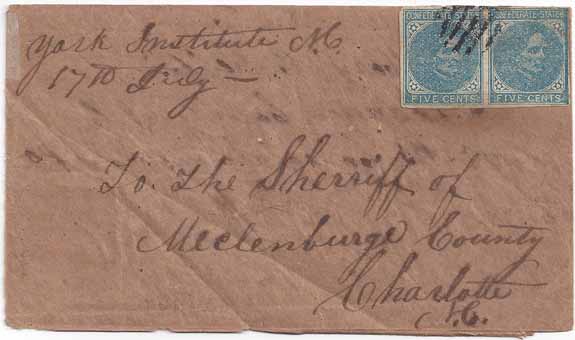 York Institute N.C.
17th July
CONFEDERATE STATES CONFEDERATE STATES
FIVE CENTS FIVE CENTS
To. The Sherriff of
Meclenburge County
Charlotte
N.C.